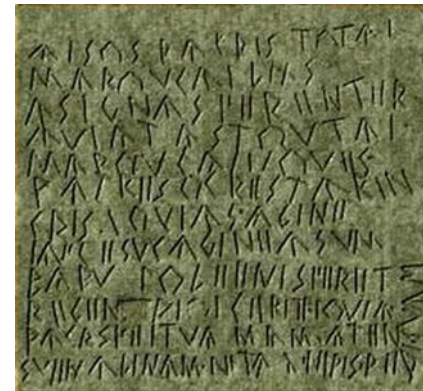 AISOS PACRIS TOTAI
MAROUCAI LIXS
ASIGNAS FERENTER
AUIATAS TOUTAI
MAROUCAI IOUES
PATRES OCRES TARIN
CRIS IOUIAS AGINE
IAFC ESUC AGINE ASUM
BABU POLEENIS FERET
REGEN PIOI CERIE IOUIA
PACRSI EITUAM AM ATENS
SUENALINAM NITA NIPIS PEDI SUAM